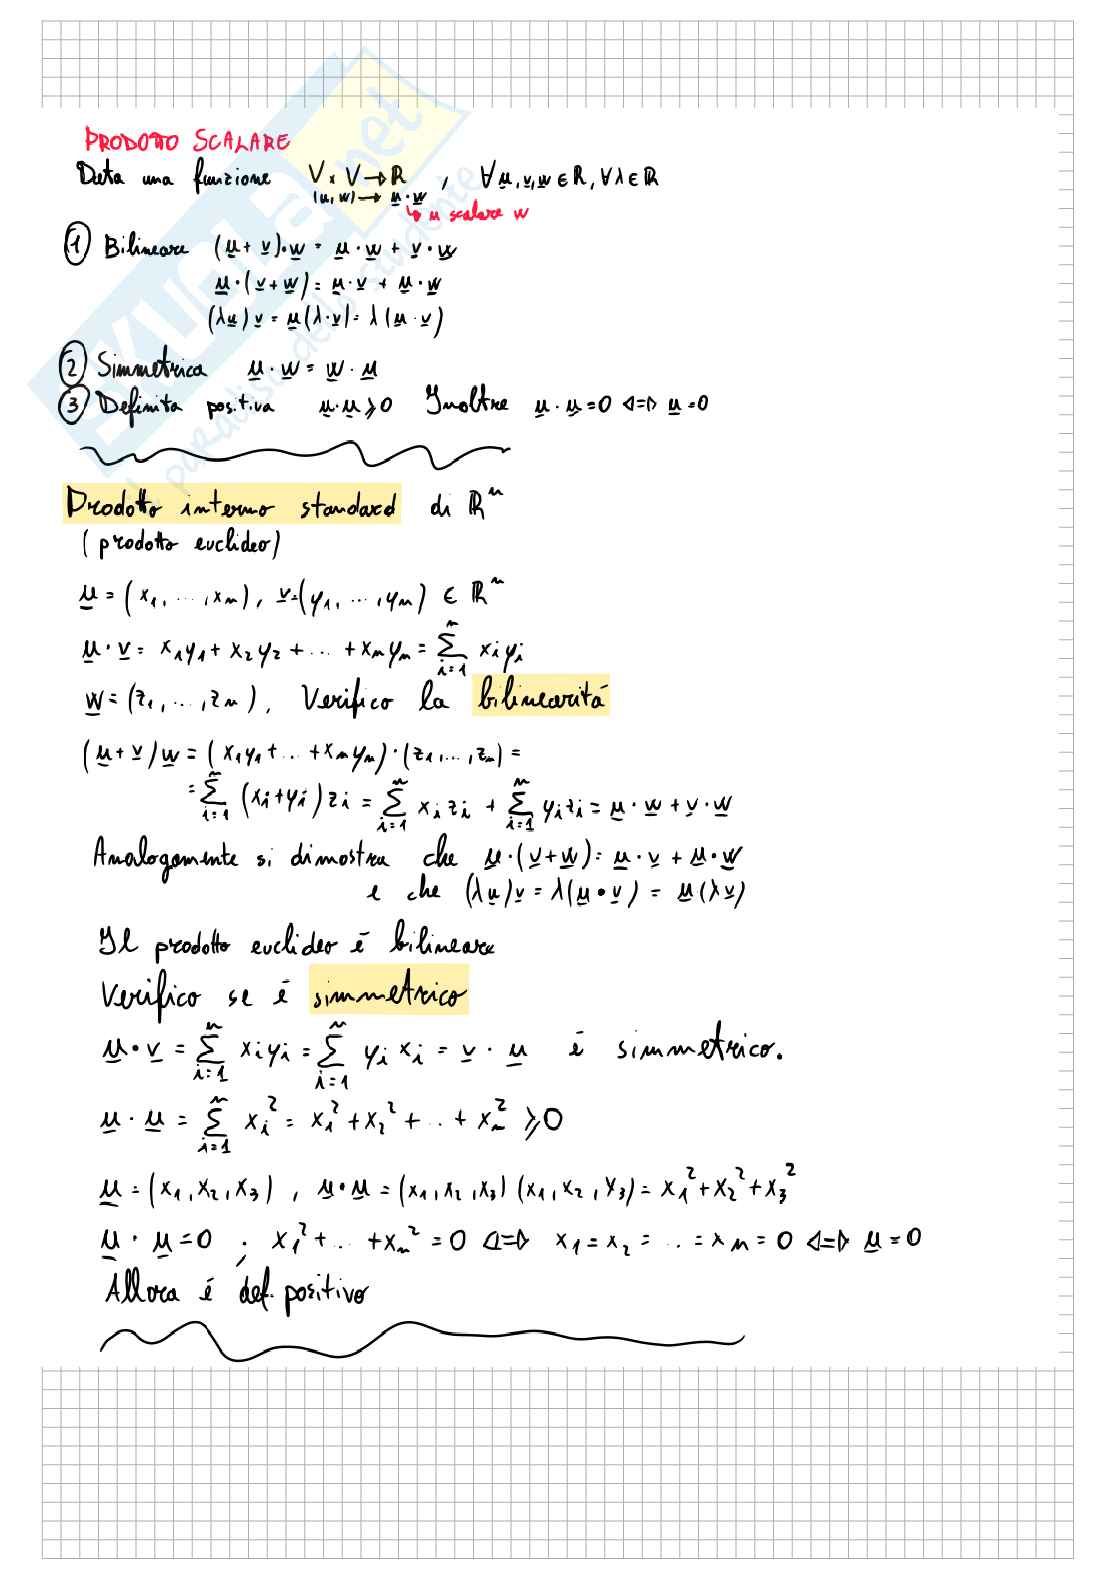 PRODOTTO SCALARE
Data una funzione V × V → R , ∀ u, v, w ∈ R, ∀ λ ∈ R
(u, w) → u · w
↳ u scalare w
① Bilineare (u + v) · w = u · w + v · w
u · (v + w) = u · v + u · w
(λu) v = u (λ · v) = λ (u · v)
② Simmetrica u · w = w · u
③ Definita positiva u · u ⩾ 0 Inoltre u · u = 0 <=> u = 0
Prodotto interno standard di R^n
(prodotto euclideo)
u = (x1, ..., xn), v = (y1, ..., yn) ∈ R^n
u · v = x1y1 + x2y2 + ... + xnyn = ∑_{i=1}^n xiyi
w = (z1, ..., zn), Verifico la bilinearitá
(u + v) w = (x1y1 + ... + xnyn) · (z1, ..., zn) =
= ∑_{i=1}^n (xi + yi) zi = ∑_{i=1}^n xizi + ∑_{i=1}^n yizi = u · w + v · w
Analogamente si dimostra che u · (v + w) = u · v + u · w
e che (λu) v = λ (u • v) = u (λv)
Il prodotto euclideo é bilineare
Verifico se é simmetrico
u • v = ∑_{i=1}^n xiyi = ∑_{i=1}^n yi xi = v · u é simmetrico.
u · u = ∑_{i=1}^n xi^2 = x1^2 + x2^2 + ... + xn^2 ⩾ 0
u = (x1, x2, x3), u • u = (x1, x2, x3) (x1, x2, x3) = x1^2 + x2^2 + x3^2
u · u = 0 ; x1^2 + ... + xn^2 = 0 <=> x1 = x2 = ... = xn = 0 <=> u = 0
Allora é def. positivo
SKUOLA.net
il paradiso dello studente